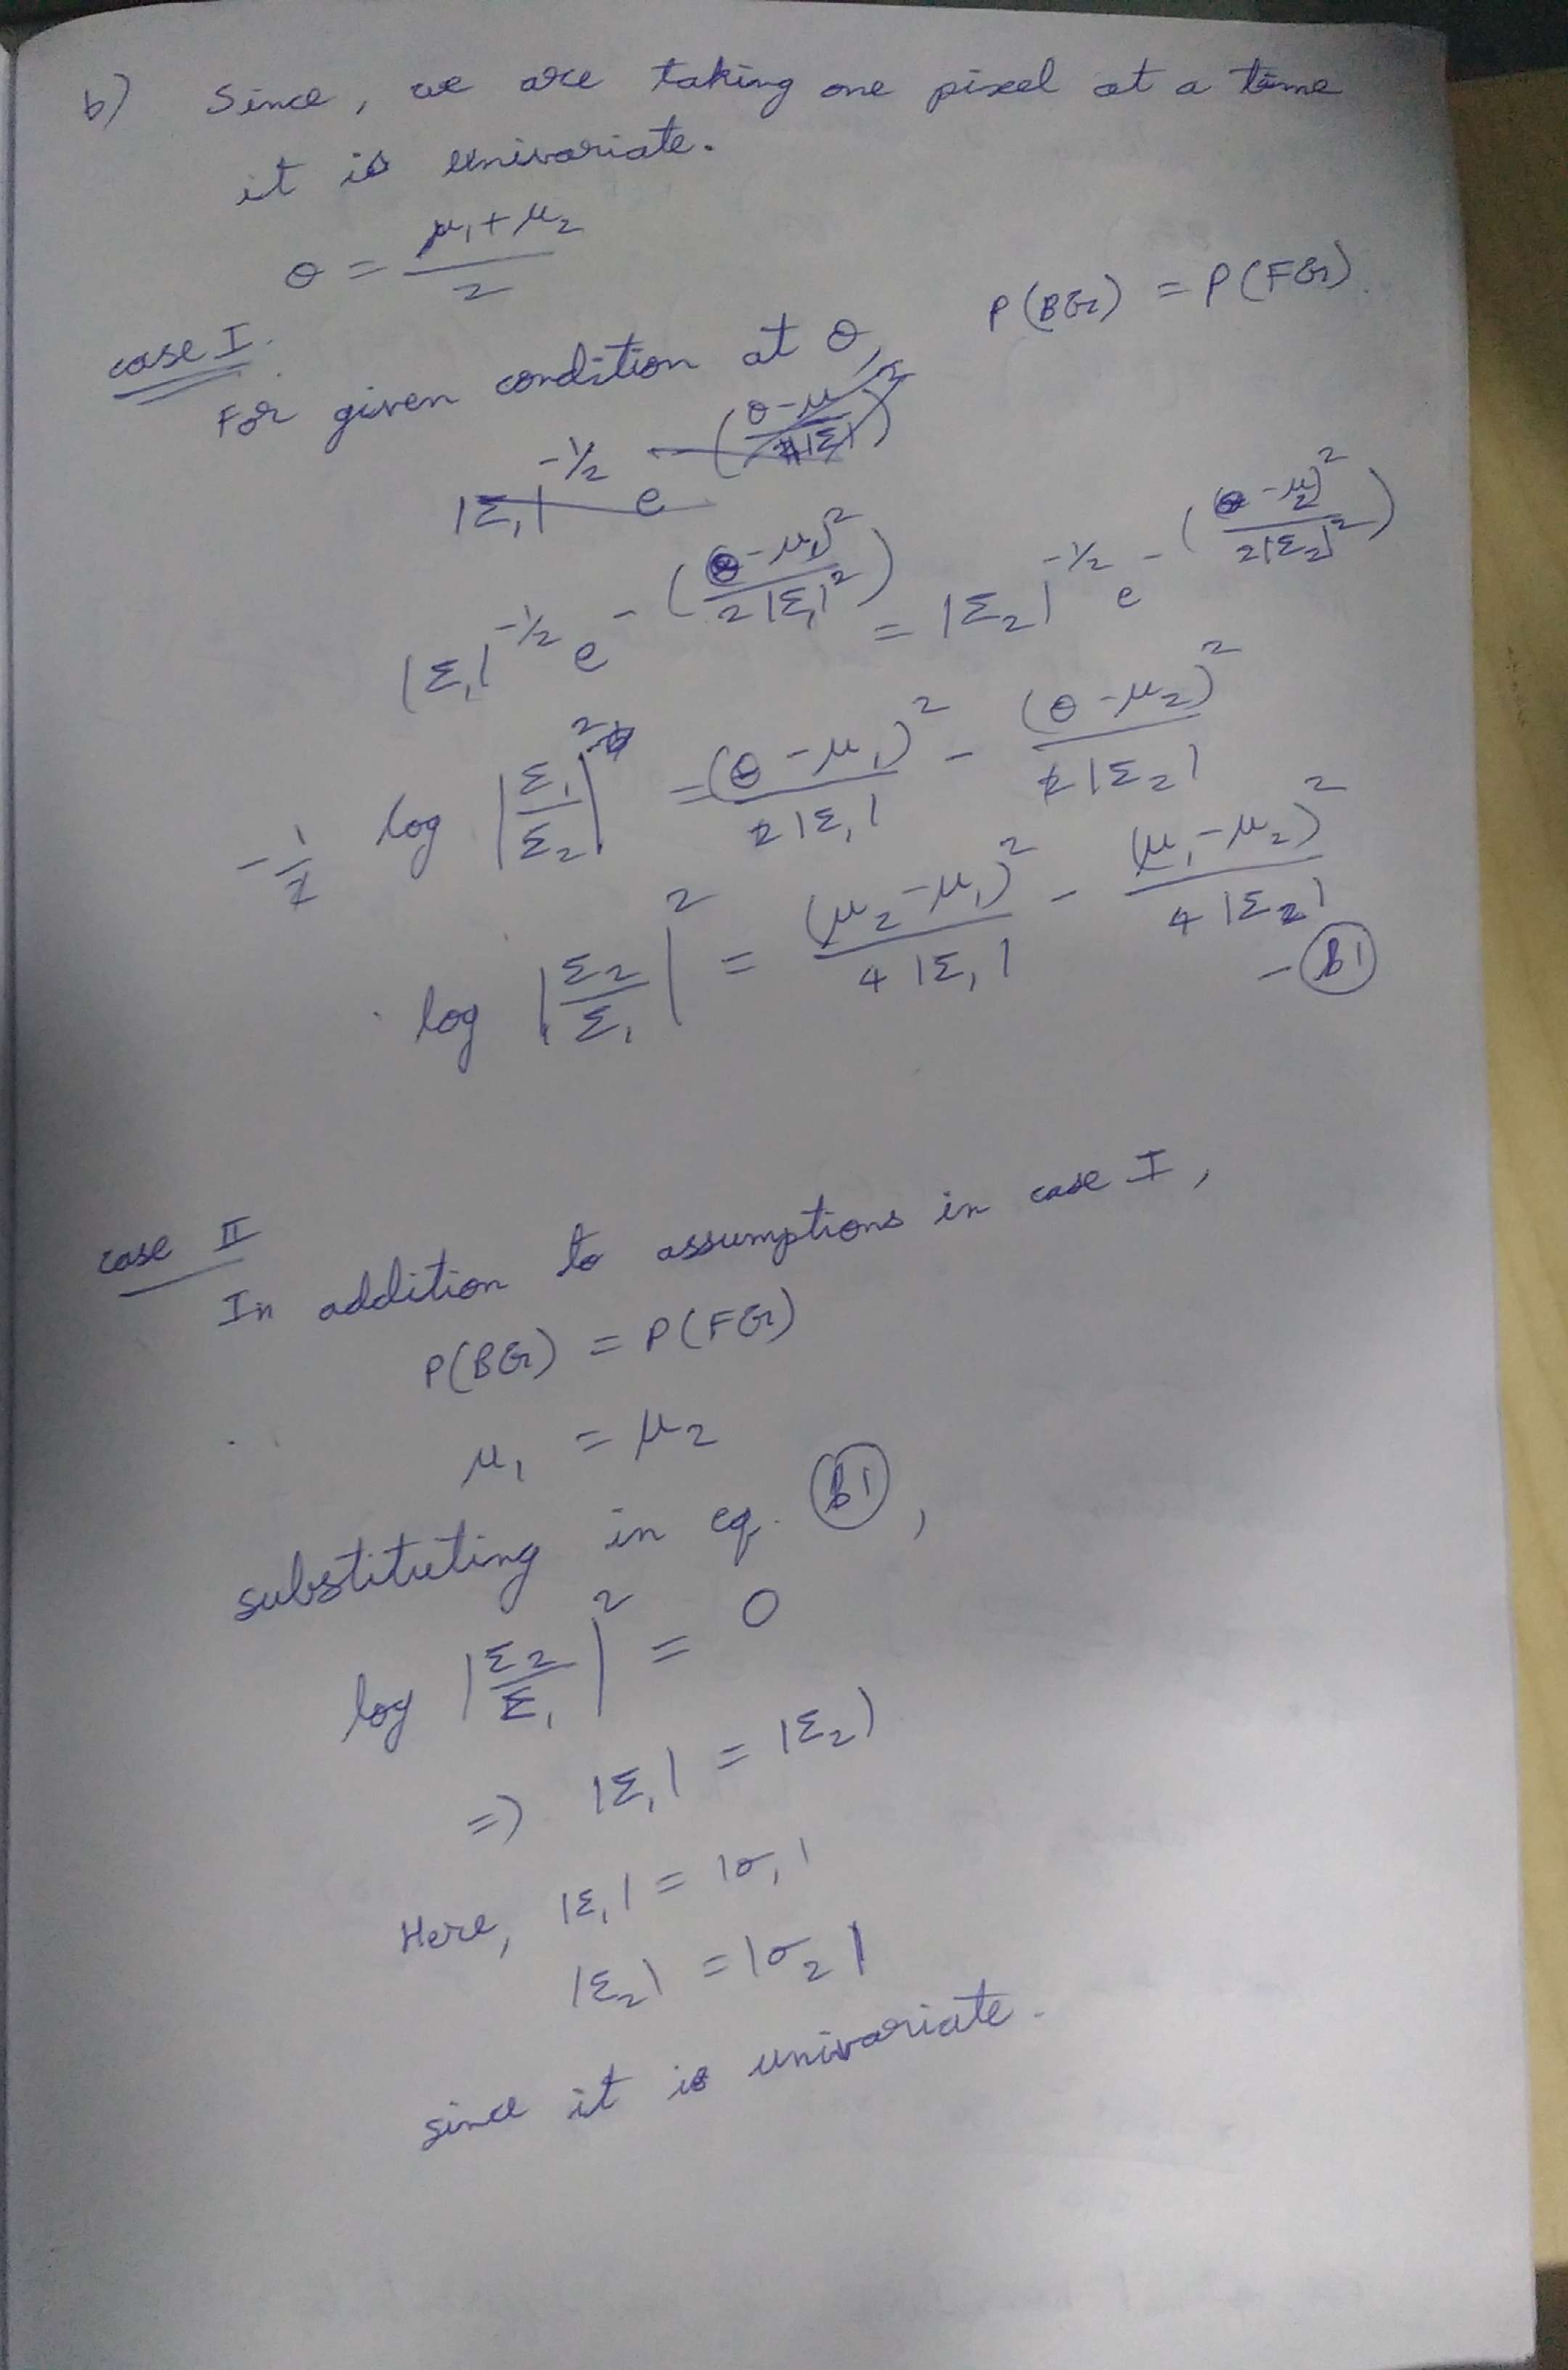 b) Since, we are taking one pixel at a time
it is univariate.
θ = (μ₁ + μ₂)/2
case I.
For given condition at θ, P(BG) = P(FG).
|Σ₁|^(-1/2) e^(-((θ-μ₁)²/(2|Σ₁|²))) = |Σ₂|^(-1/2) e^(-((θ-μ₂)²/(2|Σ₂|²)))
-1/2 log |Σ₁/Σ₂|² = (θ-μ₁)²/(2|Σ₁|) - (θ-μ₂)²/(2|Σ₂|)
log |Σ₂/Σ₁|² = (μ₂-μ₁)²/(4|Σ₁|) - (μ₁-μ₂)²/(4|Σ₂|)
- (b1)
case II
In addition to assumptions in case I,
P(BG) = P(FG)
μ₁ = μ₂
substituting in eq. (b1),
log |Σ₂/Σ₁|² = 0
=) |Σ₁| = |Σ₂|
Here, |Σ₁| = |σ₁|
|Σ₂| = |σ₂|
since it is univariate.